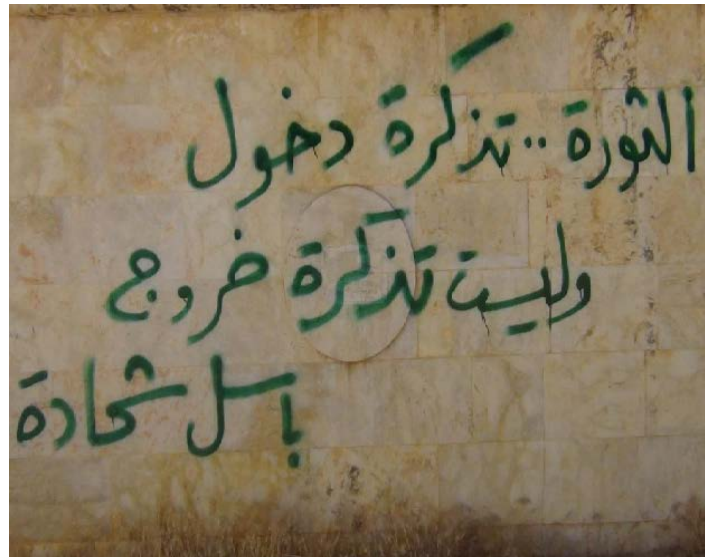 الثورة .. تذكرة دخول
وليست تذكرة خروج
باسل شحادة